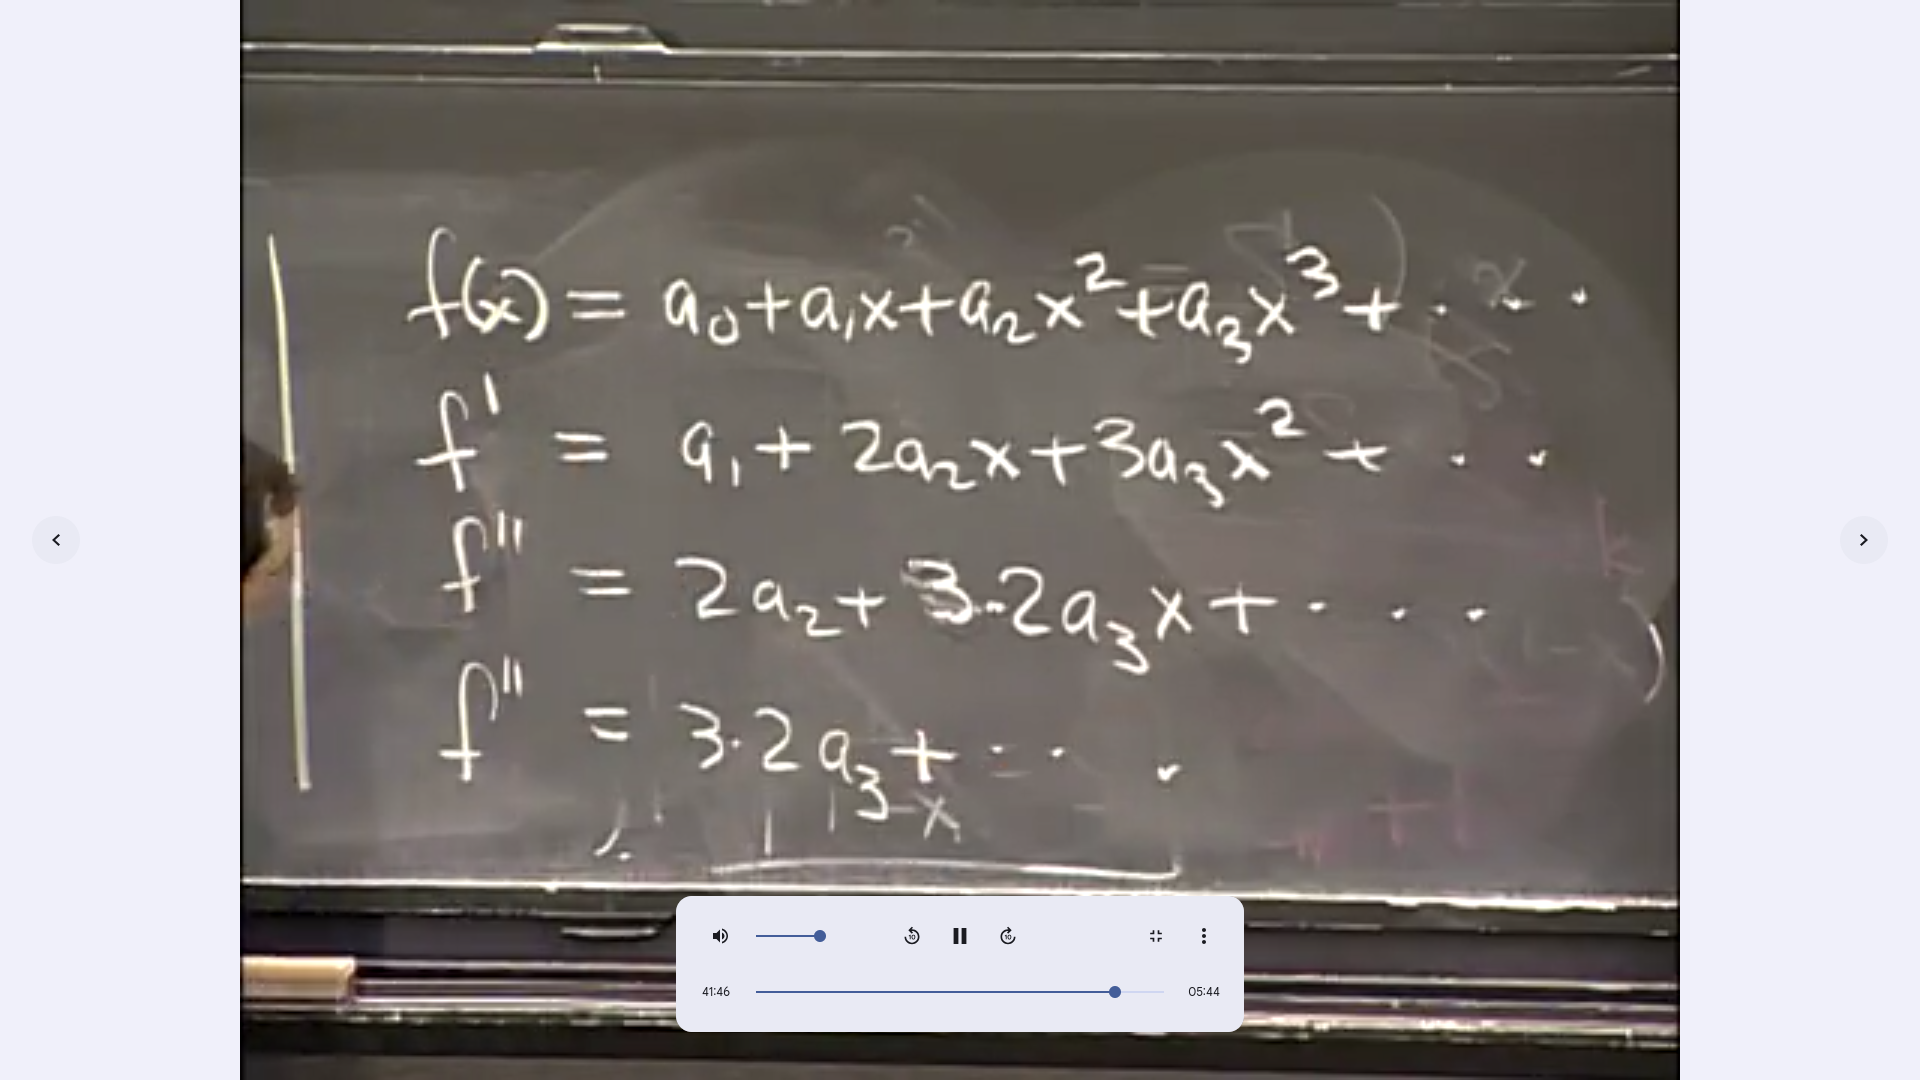 f(x) = a₀ + a₁x + a₂x² + a₃x³ + . . .
f' = a₁ + 2a₂x + 3a₃x² + . .
f'' = 2a₂ + 3·2a₃x + . . .
f'' = 3·2a₃ + . . .
10 10
41:46 05:44